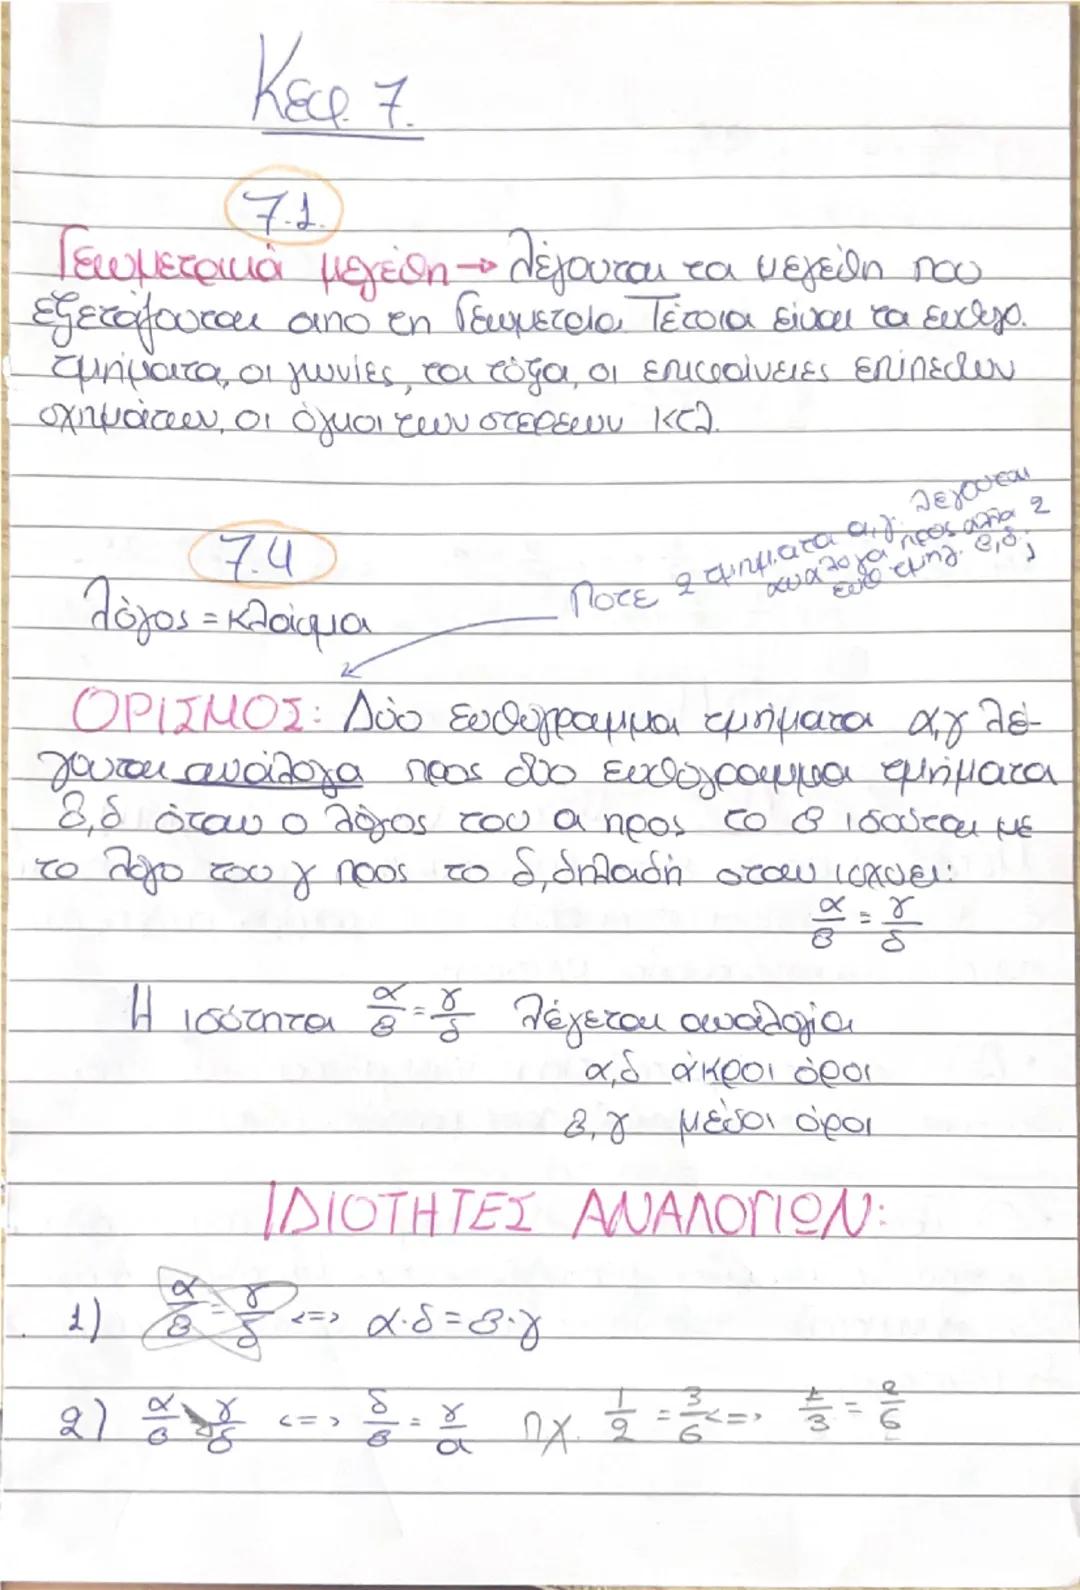 Κεφ. 7.
7.1.
Γεωμετρικά μεγέθη → λέγονται τα μεγέθη που
εξετάζονται απο τη Γεωμετρία. Τέτοια είναι τα ευθυγρ.
τμήματα, οι γωνίες, τα τόξα, οι επιφάνειες επίπεδων
σχημάτων, οι όγκοι των στερεων κτλ.
7.4
Ποτε 2 τμήματα α,γ λέγονται
αναλογα προς αλλα 2
ευθ τμημ. β,δ;
λόγος = κλάσμα
ΟΡΙΣΜΟΣ: Δύο ευθύγραμμα τμήματα α,γ λέ-
γονται ανάλογα προς δυο ευθύγραμμα τμήματα
β,δ όταν ο λόγος του α προς το β ισούται με
το λόγο του γ προς το δ, δηλαδή οταν ισχυει:
α/β = γ/δ
Η ισότητα α/β = γ/δ λέγεται αναλογία
α,δ άκροι όροι
β,γ μέσοι όροι
ΙΔΙΟΤΗΤΕΣ ΑΝΑΛΟΓΙΩΝ:
1) α/β = γ/δ <=> α·δ=β·γ
2) α/β = γ/δ <=> δ/β = γ/α πχ. 1/2 = 3/6 <=> 1/3 = 2/6